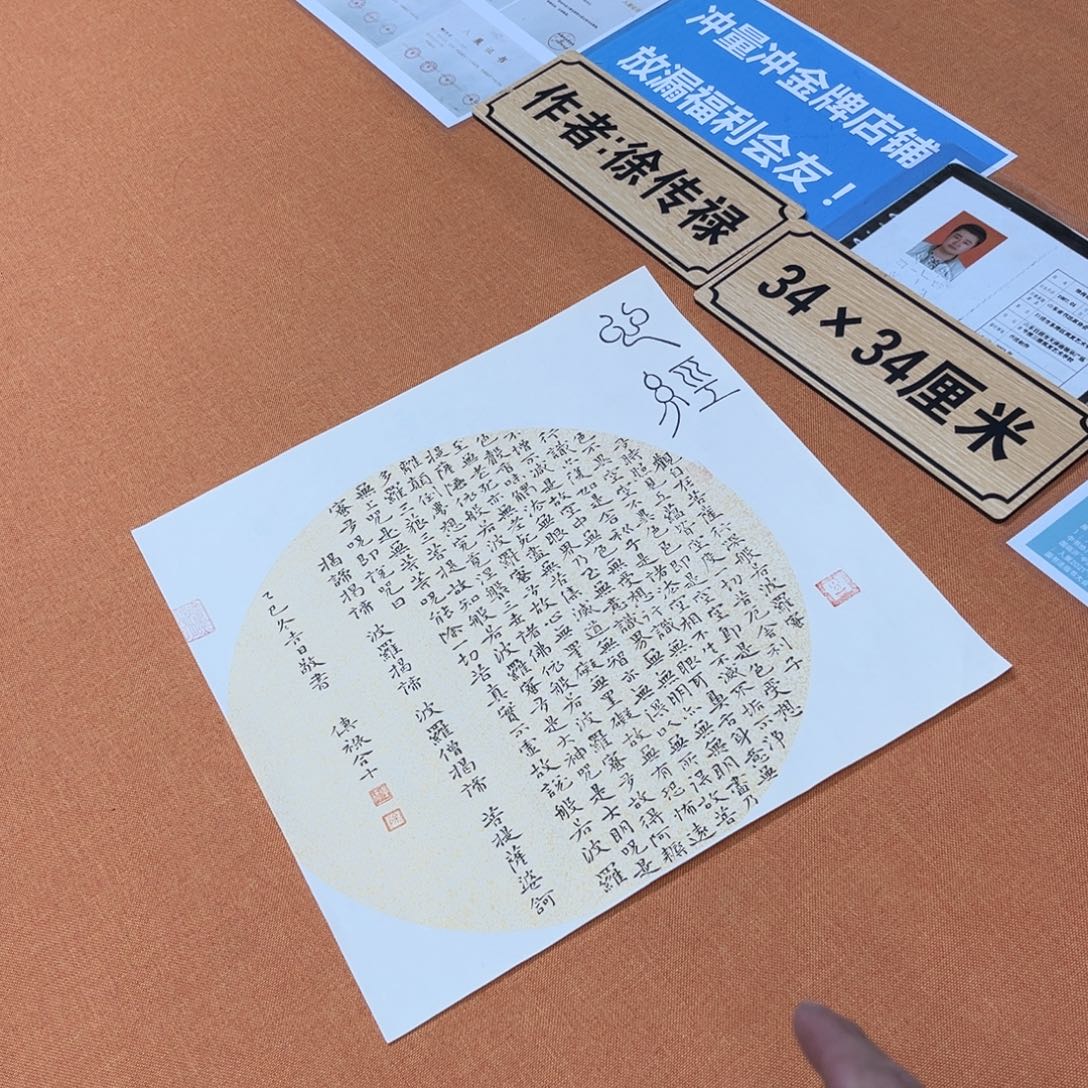 冲量冲金牌店铺
放漏福利会友！
作者:徐传禄
34×34厘米
入展证书
心經
觀自在菩薩行深般若波羅蜜
多時照見五蘊皆空度一切苦厄舍利子
色不異空空不異色色即是空空即是色受想
行識亦復如是舍利子是諸法空相不生不滅不垢不淨
不增不減是故空中無色無受想行識無眼耳鼻舌身意無
色聲香味觸法無眼界乃至無意識界無無明亦無無明盡乃
至無老死亦無老死盡無苦集滅道無智亦無得以無所得故菩
提薩埵依般若波羅蜜多故心無罣礙無罣礙故無有恐怖遠
離顛倒夢想究竟涅槃三世諸佛依般若波羅蜜多故得阿耨
多羅三藐三菩提故知般若波羅蜜多是大神咒是大明咒是
無上咒是無等等咒能除一切苦真實不虛故說般若波羅
蜜多咒即說咒曰
揭諦揭諦 波羅揭諦 波羅僧揭諦 菩提薩婆訶
乙巳冬吉日敬書 傳祿合十